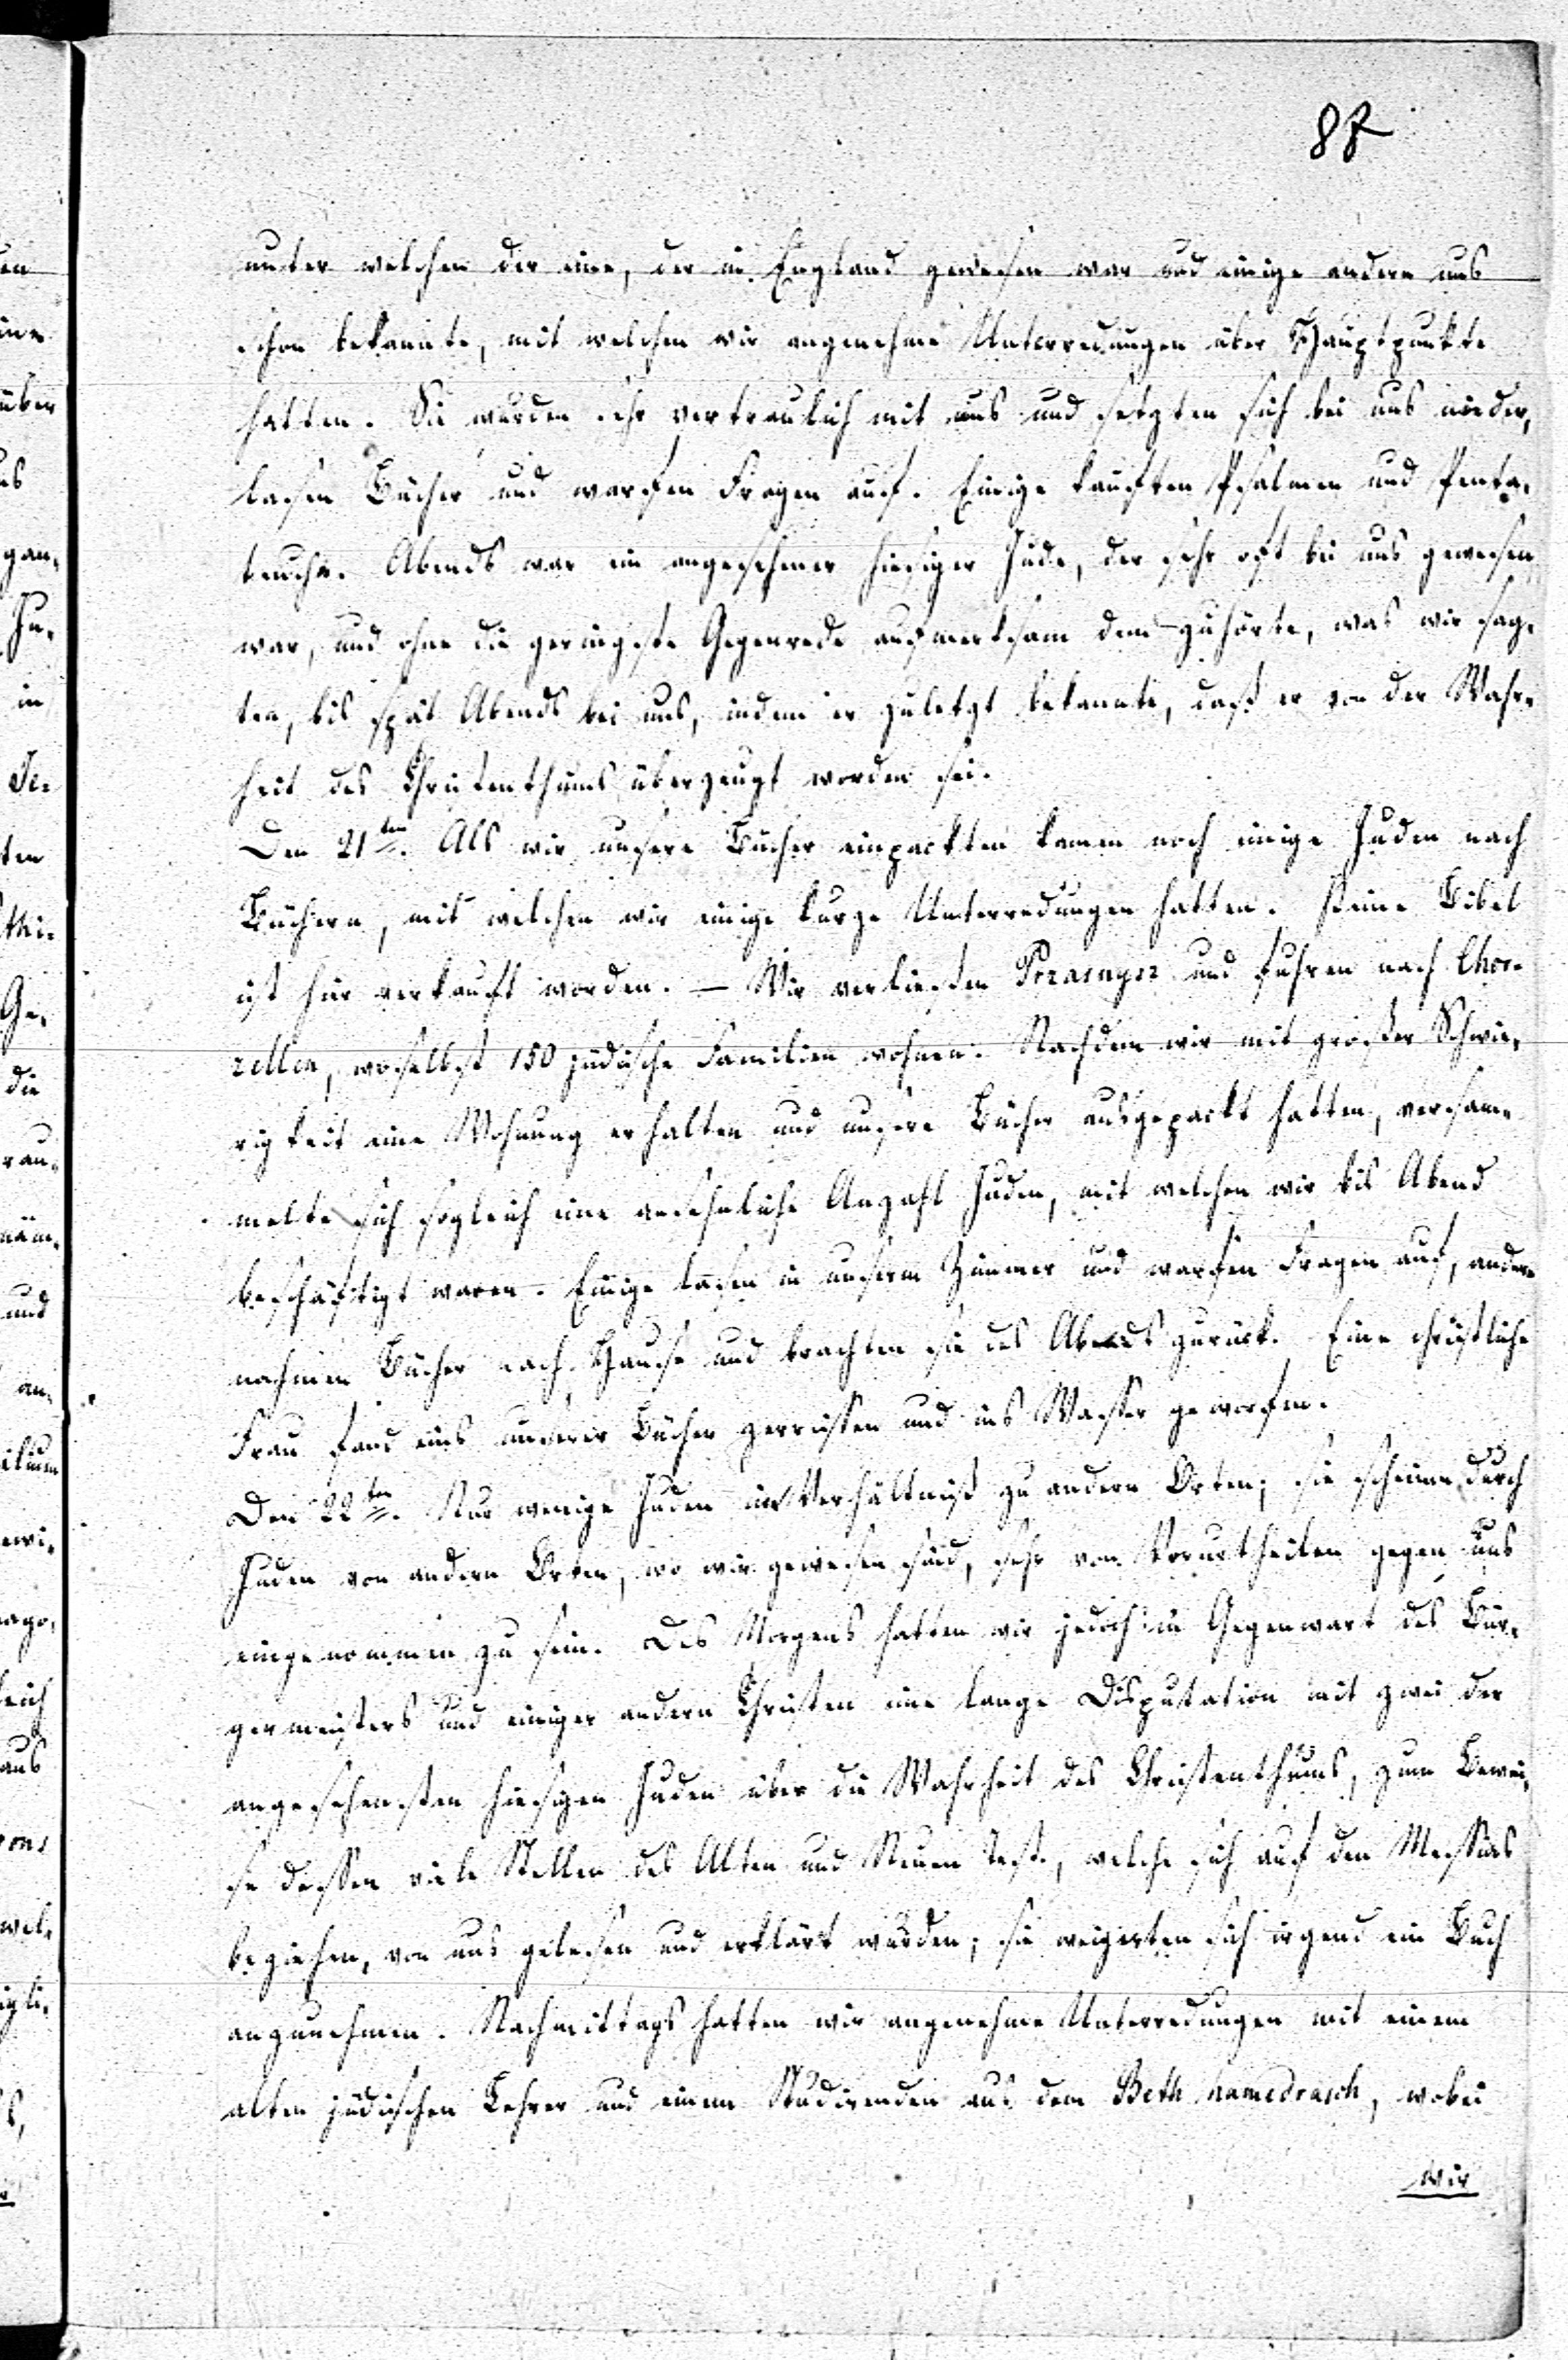 87
unter welchen der eine, der in England gewesen war und einige andere uns
schon bekannte, mit welchen wir angenehme Unterredungen über Hauptpunkte
hatten. Sie wurden sehr vertraulich mit uns und setzten sich bei uns nieder,
lasen Bücher und warfen Fragen auf. Einige kauften Psalmen und Penta-
teuche. Abends war ein angesehener hiesiger Jude, der sehr oft bei uns gewesen
war, und ohne die geringste Gegenrede aufmerksam dem zuhörte, was wir sag-
ten, bis spät Abends bei uns, indem er zuletzt bekannte, daß er von der Wahr-
heit des Christenthums überzeugt worden sei.
Den 21ten. Als wir unsere Bücher einpackten kamen noch einige Juden nach
Büchern, mit welchen wir einige kurze Unterredungen hatten. Keine Bibel
ist hier verkauft worden. — Wir verließen und fuhren nach Chor-
zellen, woselbst 150 jüdische Familien wohnen. Nachdem wir mit großer Schwie-
rigkeit eine Wohnung erhalten und unsere Bücher ausgepackt hatten, versam-
melte sich sogleich eine ansehnliche Anzahl Juden, mit welchen wir bis Abend
beschäftigt waren. Einige lasen in unserm Zimmer und warfen Fragen auf, andere
nahmen Bücher nach Hause und brachten sie des Abends zurück. Eine christliche
Frau fand eins unserer Bücher zerrissen und ins Wasser geworfen.
Den 22ten. Nur wenige Juden im Verhältniß zu andern Orten; sie scheinen durch
Juden von andern Orten, wo wir gewesen sind, sehr von Vorurtheilen gegen uns
eingenommen zu sein. Des Morgens hatten wir jedoch in Gegenwart des Bür-
germeisters und einiger andern Christen eine lange Disputation mit zwei der
angesehensten hiesigen Juden über die Wahrheit des Christenthums, zum Bewei-
se dessen viele Stellen des Alten und Neuen Test., welche sich auf den Messias
beziehen, von uns gelesen und erklärt wurden; sie weigerten sich irgend ein Buch
anzunehmen. Nachmittags hatten wir angenehme Unterredungen mit einem
alten jüdischen Lehrer und einem Studirenden aus dem Beth hamedrasch, wobei
wir